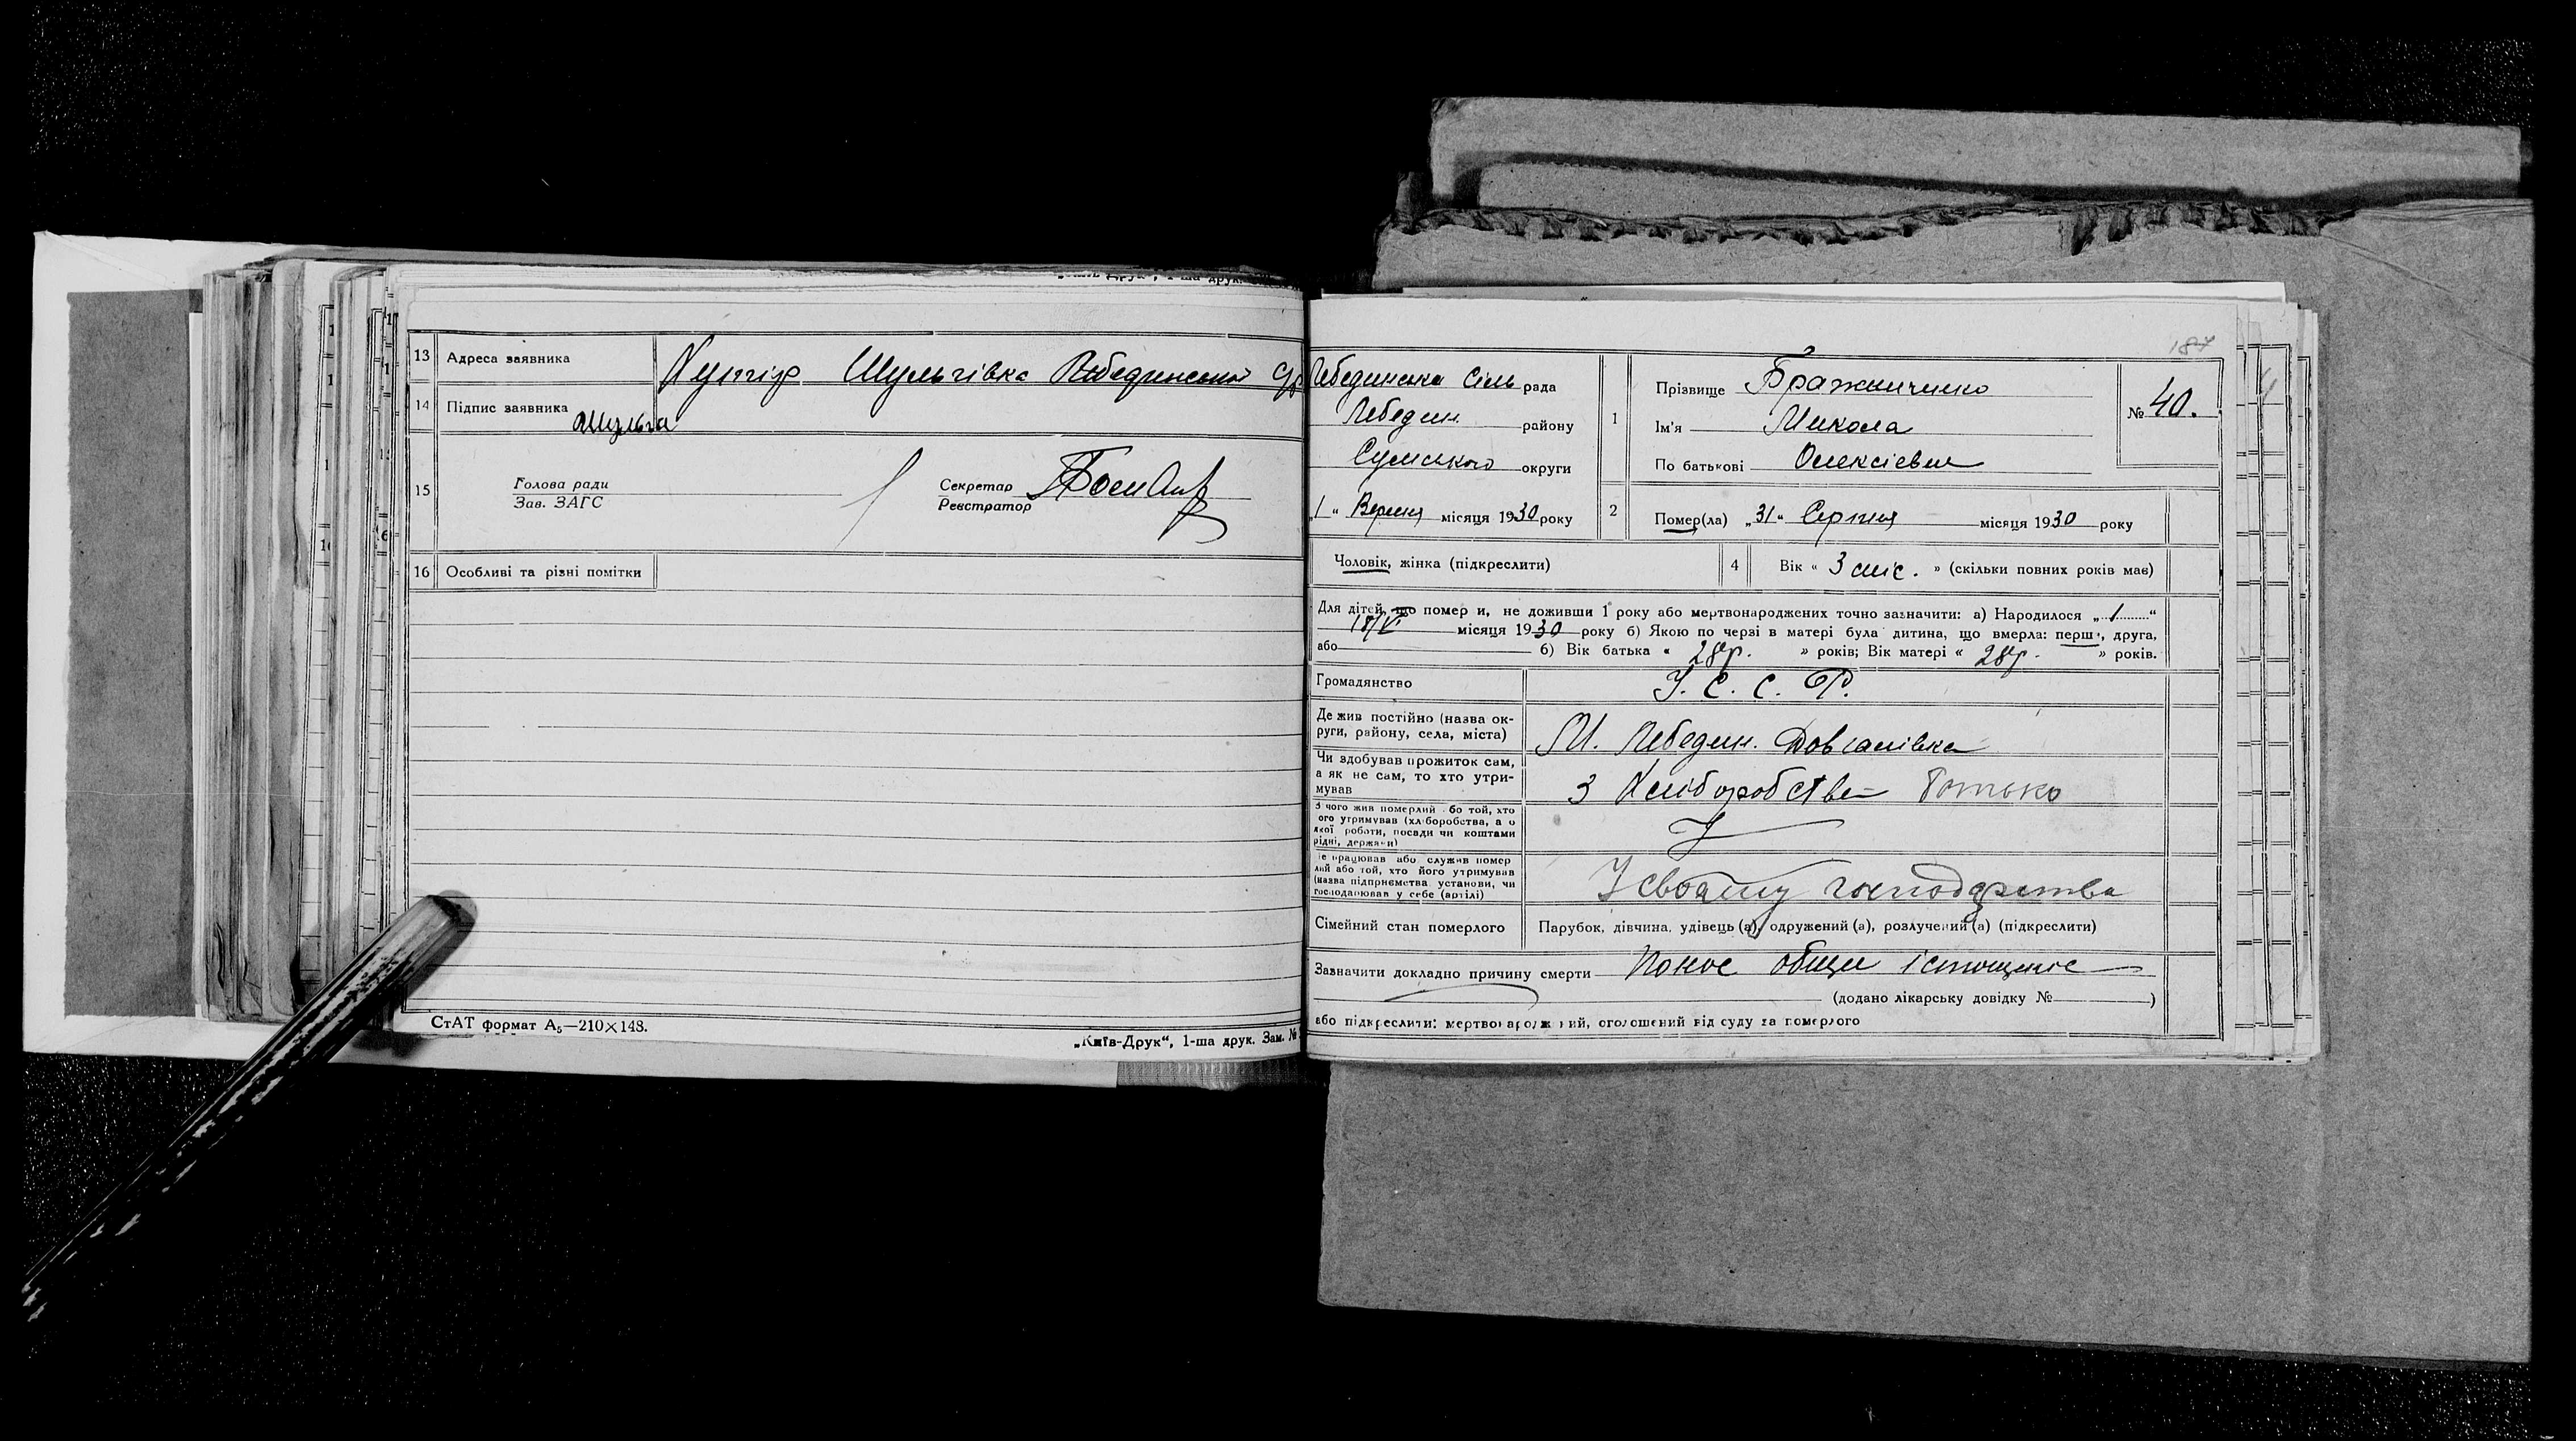 13 Адреса заявника Хутір Шульгівка Лебединської
14 Підпис заявника Шульга
15 Голова ради
Зав. ЗАГС
Секретар
Реєстратор
16 Особливі та різні помітки
СтАТ формат А5—210×148.
„Київ-Друк“, 1-ша друк. Зам. №
187
Лебединська Сіль рада
Лебедин. району
Сумського округи
„1“ Вересня місяця 1930 року
1 Прізвище Бражниченко
Ім'я Микола
По батькові Олексієвич
№ 40.
2 Помер(ла) „31“ Серпня місяця 1930 року
Чоловік, жінка (підкреслити)
4 Вік « 3 міс. » (скільки повних років має)
Для дітей, що померли, не доживши 1 року або мертвонароджених точно зазначити: а) Народилося „ 1 “
18/V місяця 1930 року б) Якою по черзі в матері була дитина, що вмерла: перша, друга,
або б) Вік батька « 28 р. » років; Вік матері « 28 р. » років.
Громадянство У. С. С. Р.
Де жив постійно (назва ок-
руги, району, села, міста) М. Лебедин. Довганівка
Чи здобував прожиток сам,
а як не сам, то хто утри-
мував З Хліборобства Батько
З чого жив померлий або той, хто
його утримував (хліборобства, а о
якої роботи, посади чи коштами
рідні, держави)
Де працював або служив помер
лий або той, хто його утримував
(назва підприємства установи, чи
господарював у себе (артілі) У своєму господарства
Сімейний стан померлого Парубок, дівчина, удівець (а), одружений (а), розлучений (а) (підкреслити)
Зазначити докладно причину смерти Понос общее істощеніє
(додано лікарську довідку № )
або підкреслити: мертвонароджений, оголошений від суду за померлого